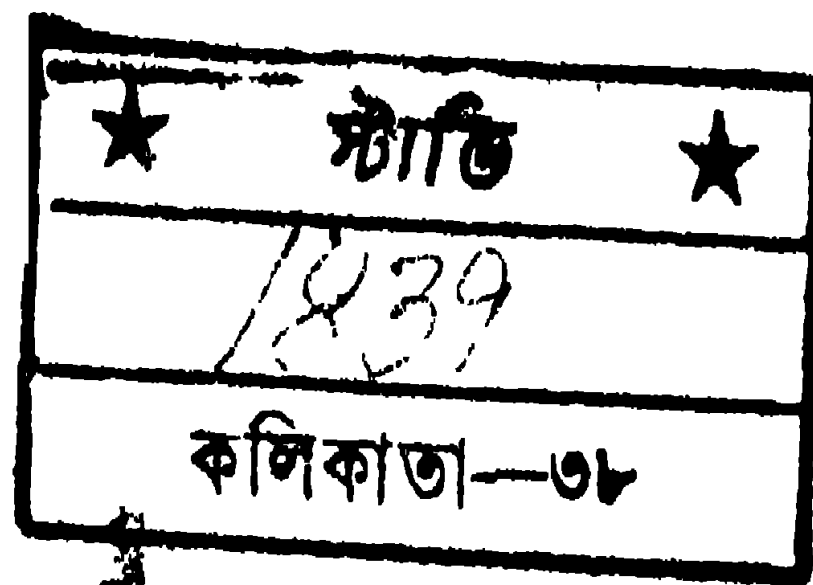 ★ স্টাডি ★
1839
কলিকাতা—৩৮